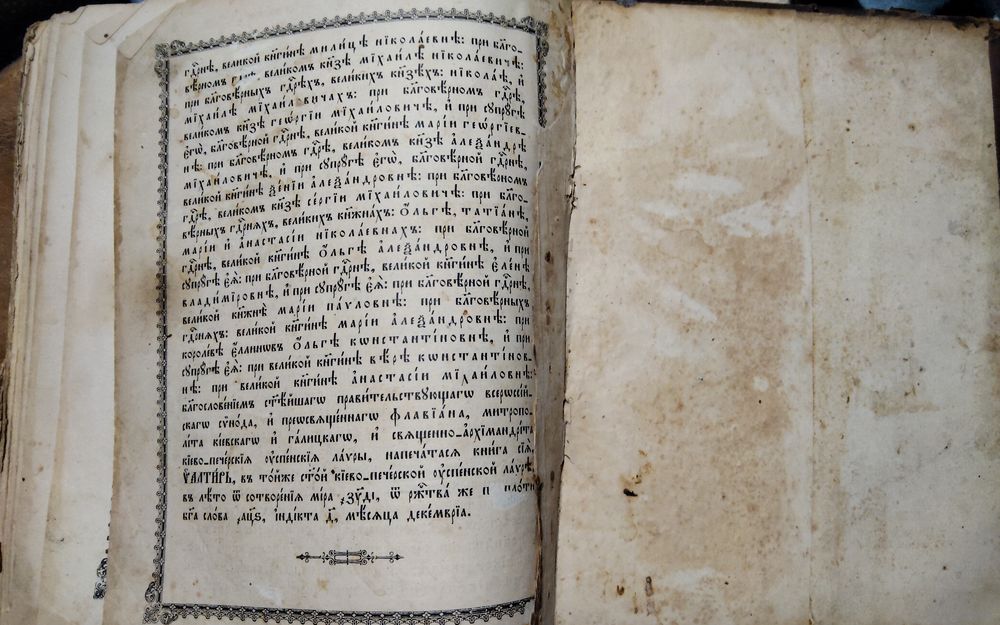 гдⷭ҇рнѣ, вели́кой кнѧги́нѣ мили́цѣ нїкола́евнѣ: при бл҃го-
вѣ́рномъ гдⷭ҇рѣ, вели́комъ кнѧ́зѣ мїхаи́лѣ нїкола́евичѣ:
при бл҃говѣ́рныхъ гдⷭ҇рѣхъ, вели́кихъ кнѧзѣ́хъ: нїкола́ѣ, и҆
мїхаи́лѣ мїхаи́ловичахъ: при бл҃говѣ́рномъ гдⷭ҇рѣ,
вели́комъ кнѧ́зѣ геѡ́ргїи мїхаи́ловичѣ, и҆ при сꙋпрꙋ́гѣ
є҆гѡ̀, бл҃говѣ́рной гдⷭ҇рнѣ, вели́кой кнѧги́нѣ марі́и геѡ́ргїев-
нѣ: при бл҃говѣ́рномъ гдⷭ҇рѣ, вели́комъ кнѧ́зѣ а҆леѯа́ндрѣ
мїхаи́ловичѣ, и҆ при сꙋпрꙋ́гѣ є҆гѡ̀, бл҃говѣ́рной гдⷭ҇рнѣ,
вели́кой кнѧги́нѣ ѯе́нїи а҆леѯа́ндровнѣ: при бл҃говѣ́рномъ
гдⷭ҇рѣ, вели́комъ кнѧ́зѣ се́ргїи мїхаи́ловичѣ: при бл҃го-
вѣ́рныхъ гдⷭ҇рнѧхъ, вели́кихъ кнѧжна́хъ: ѻ҆́льгѣ, татїа́нѣ,
марі́и и҆ а҆настасі́и нїкола́евнахъ: при бл҃говѣ́рной
гдⷭ҇рнѣ, вели́кой кнѧги́нѣ ѻ҆́льгѣ а҆леѯа́ндровнѣ, и҆ при
сꙋпрꙋ́гѣ є҆ѧ̀: при бл҃говѣ́рной гдⷭ҇рнѣ, вели́кой кнѧги́нѣ є҆ле́нѣ
влади́мїровнѣ, и҆ при сꙋпрꙋ́гѣ є҆ѧ̀: при бл҃говѣ́рной гдⷭ҇рнѣ,
вели́кой кнѧжнѣ̀ марі́и па́ѵловнѣ: при бл҃говѣ́рныхъ
гдⷭ҇рнѧхъ: вели́кой кнѧги́нѣ марі́и а҆леѯа́ндровнѣ: при
короле́вѣ є҆́ллинѡвъ ѻ҆́льгѣ кѡнстанті́новнѣ, и҆ при
сꙋпрꙋ́гѣ є҆ѧ̀: при вели́кой кнѧги́нѣ вѣ́рѣ кѡнстанті́нов-
нѣ: при вели́кой кнѧги́нѣ а҆настасі́и мїхаи́ловнѣ:
бл҃гослове́нїемъ ст҃ѣ́йшагѡ прави́тельствꙋющагѡ всерѡссі́й-
скагѡ сѷно́да, и҆ преѡсвѧще́ннагѡ флавїа́на, митропо-
лі́та кі́евскагѡ и҆ га́лицкагѡ, и҆ свѧще́нно-а҆рхїмандрі́та
кі́ево-пече́рскїѧ ᲂу҆спе́нскїѧ ла́ѵры, напеча́тасѧ кни́га сїѧ̀,
ѱалти́рь, въ то́йже ст҃о́й кі́ево-пече́рской ᲂу҆спе́нской ла́ѵрѣ,
въ лѣ́то ѿ сотворе́нїѧ мі́ра ҂зуд҃і, ѿ рж҃тва́ же п плоти
бг҃а сло́ва ҂ац҃ѕ, і҆нді́кта д҃, мѣ́сѧца деке́мврїа.